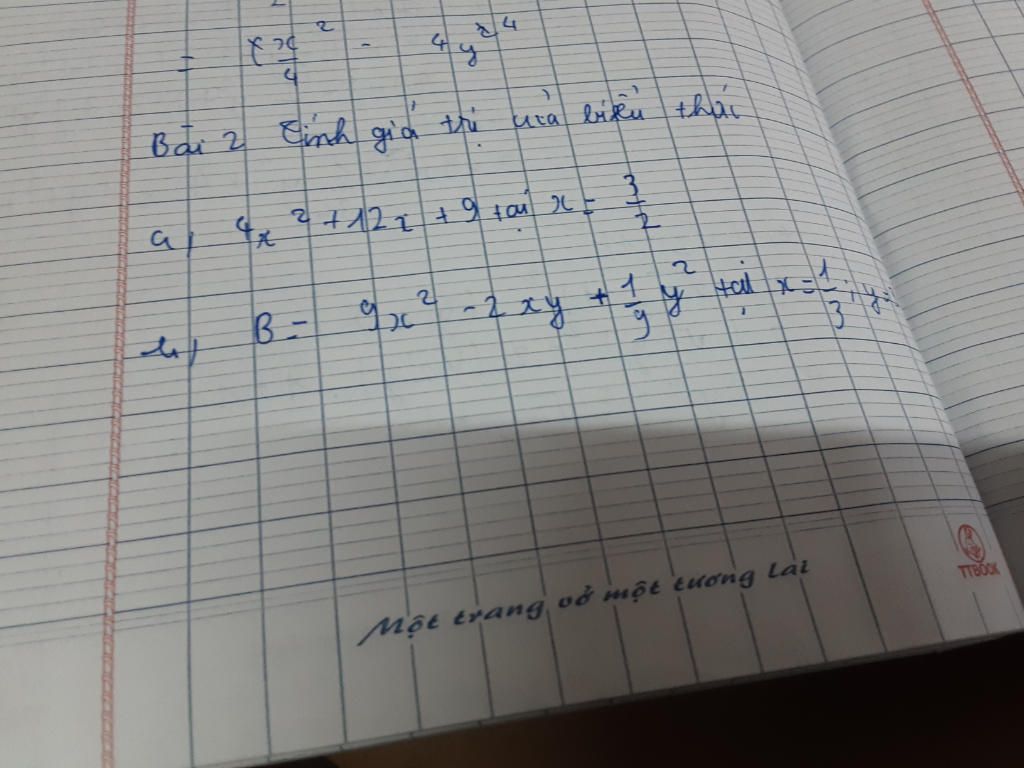 = x²/4 - 4y⁴
Bài 2 Tính giá trị của biểu thức
a, 4x² + 12x + 9 tại x = 3/2
b, B = 9x² - 2xy + 1/9 y² tại x = 1/3; y =
Một trang vở một tương lai
TTBOOK